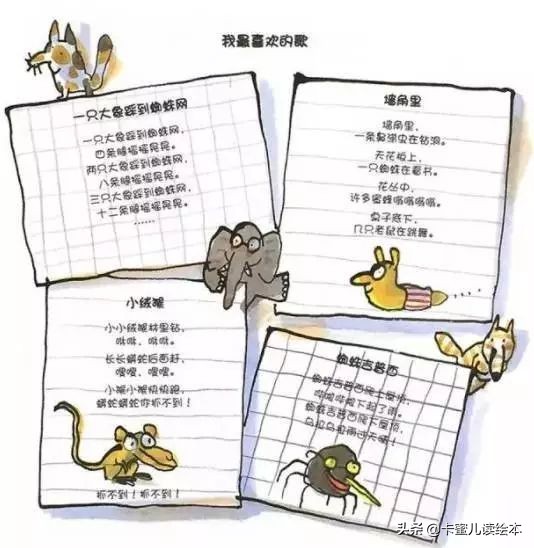 我最喜欢的歌
一只大象踩到蜘蛛网
一只大象踩到蜘蛛网，
四条腿摇摇晃晃。
两只大象踩到蜘蛛网，
八条腿摇摇晃晃。
三只大象踩到蜘蛛网，
十二条腿摇摇晃晃。
……
墙角里
墙角里，
一条鼻涕虫在钻洞。
天花板上，
一只蜘蛛在看书。
花丛中，
许多蜜蜂嗡嗡嗡嗡。
桌子底下，
几只老鼠在跳舞。
小绒猴
小小绒猴林里钻，
咻咻，咻咻。
长长蟒蛇后面赶，
嗖嗖，嗖嗖。
小猴小猴快快跑，
蟒蛇蟒蛇你抓不到！
抓不到！抓不到！
蜘蛛吉普西
蜘蛛吉普西爬上屋顶，
哗啦哗啦下起了雨。
蜘蛛吉普西爬下屋顶，
乌拉乌拉雨过天晴！
头条 @卡蜜儿读绘本